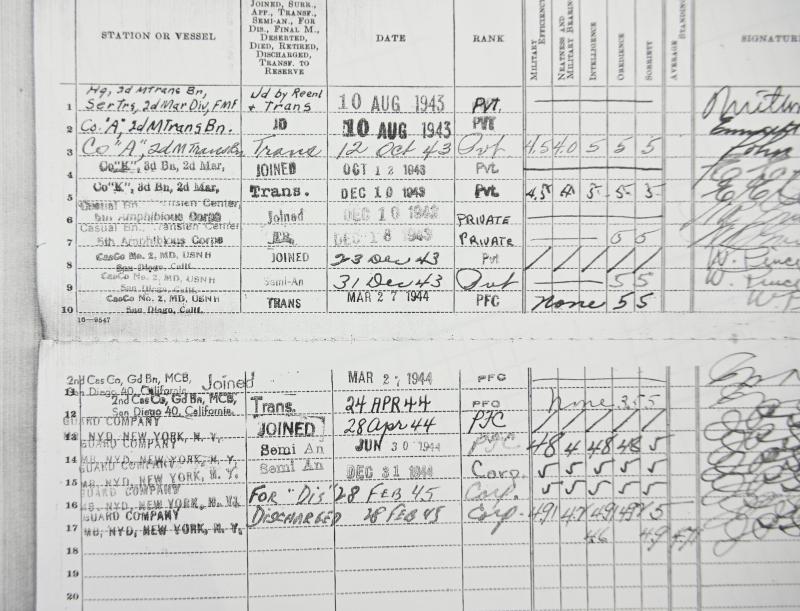 STATION OR VESSEL
JOINED, SURR., APP., TRANSF., SEMI-AN., FOR DIS., FINAL M., DESERTED, DIED, RETIRED, DISCHARGED, TRANSF. TO RESERVE
DATE
RANK
MILITARY EFFICIENCY
NEATNESS AND MILITARY BEARING
INTELLIGENCE
OBEDIENCE
SOBRIETY
AVERAGE STANDING
SIGNATURE
Hq, 2d MTrans Bn, Jd by Reenl
1 SerTrs, 2d MarDiv, FMF & Trans 10 AUG 1943 PVT.
2 Co. "A", 2d MTrans Bn. JD 10 AUG 1943 PVT
3 Co "A", 2d MTransBn Trans 12 Oct 43 Pvt 4.5 4.0 5 5 5 John
4 Co "K", 3d Bn, 2d Mar, JOINED OCT 12 1943 Pvt
5 Co "K", 3d Bn, 2d Mar, Trans. DEC 10 1943 Pvt. 4.5 4 5 5 5
Casual Bn. Transien Center,
6 5th Amphibious Corps Joined DEC 10 1943 PRIVATE
Casual Bn., Transien Center
7 5th Amphibious Corps TR. DEC 18 1943 PRIVATE 5 5
CasCo No. 2, MD, USNH
8 San Diego, Calif. JOINED 23 Dec 43 Pvt
CasCo No. 2, MD, USNH
9 San Diego, Calif. Semi-An 31 Dec 43 Pvt 5 5
CasCo No. 2, MD, USNH
10 San Diego, Calif. TRANS MAR 27 1944 PFC None 5 5
16—9547
2nd Cas Co, Gd Bn, MCB,
11 San Diego 40, California Joined MAR 27 1944 PFC
2nd Cas Co, Gd Bn, MCB,
12 San Diego 40, California. Trans. 24 APR 44 PFC None
GUARD COMPANY
13 NYD, NEW YORK, N. Y. JOINED 28 Apr 44 PFC
GUARD COMPANY
14 MB, NYD, NEW YORK, N. Y. Semi An JUN 30 1944 PFC 48 4 48 48 5
GUARD COMPANY
15 MB, NYD, NEW YORK, N. Y. Semi An DEC 31 1944 Corp. 5 5 5 5 5
GUARD COMPANY
16 MB, NYD, NEW YORK, N. Y. FOR "DIS" 28 FEB 45 Corp. 5 5 5 5 5
GUARD COMPANY
17 MB, NYD, NEW YORK, N. Y. DISCHARGED 28 FEB 45 Corp.
18
19
20